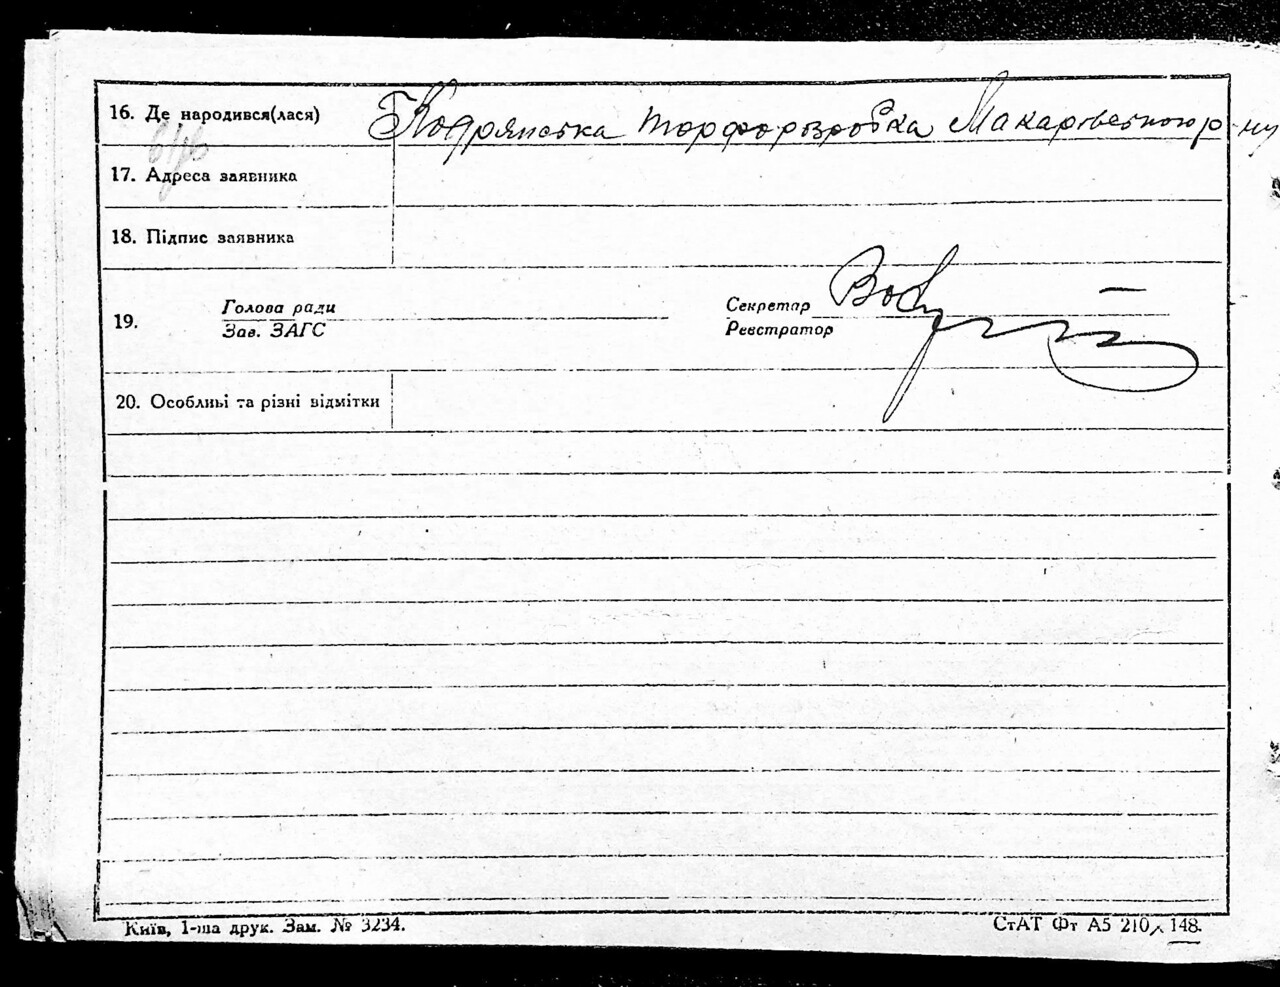 16. Де народився(лася) Кодрянська торфорозробка Макарівського р-ну
17. Адреса заявника
18. Підпис заявника
19. Голова ради Секретар
Зав. ЗАГС Реєстратор
20. Особливі та різні відмітки
Київ, 1-ша друк. Зам. № 3234. СтАТ Фт А5 210 × 148.